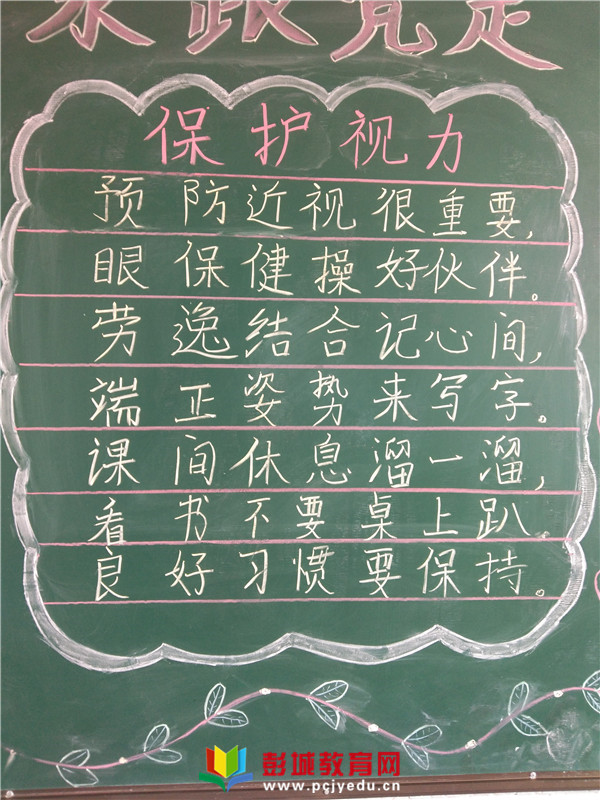 保护视力
预防近视很重要,
眼保健操好伙伴。
劳逸结合记心间,
端正姿势来写字。
课间休息溜一溜,
看书不要桌上趴。
良好习惯要保持。
彭城教育网
www.pcjyedu.cn